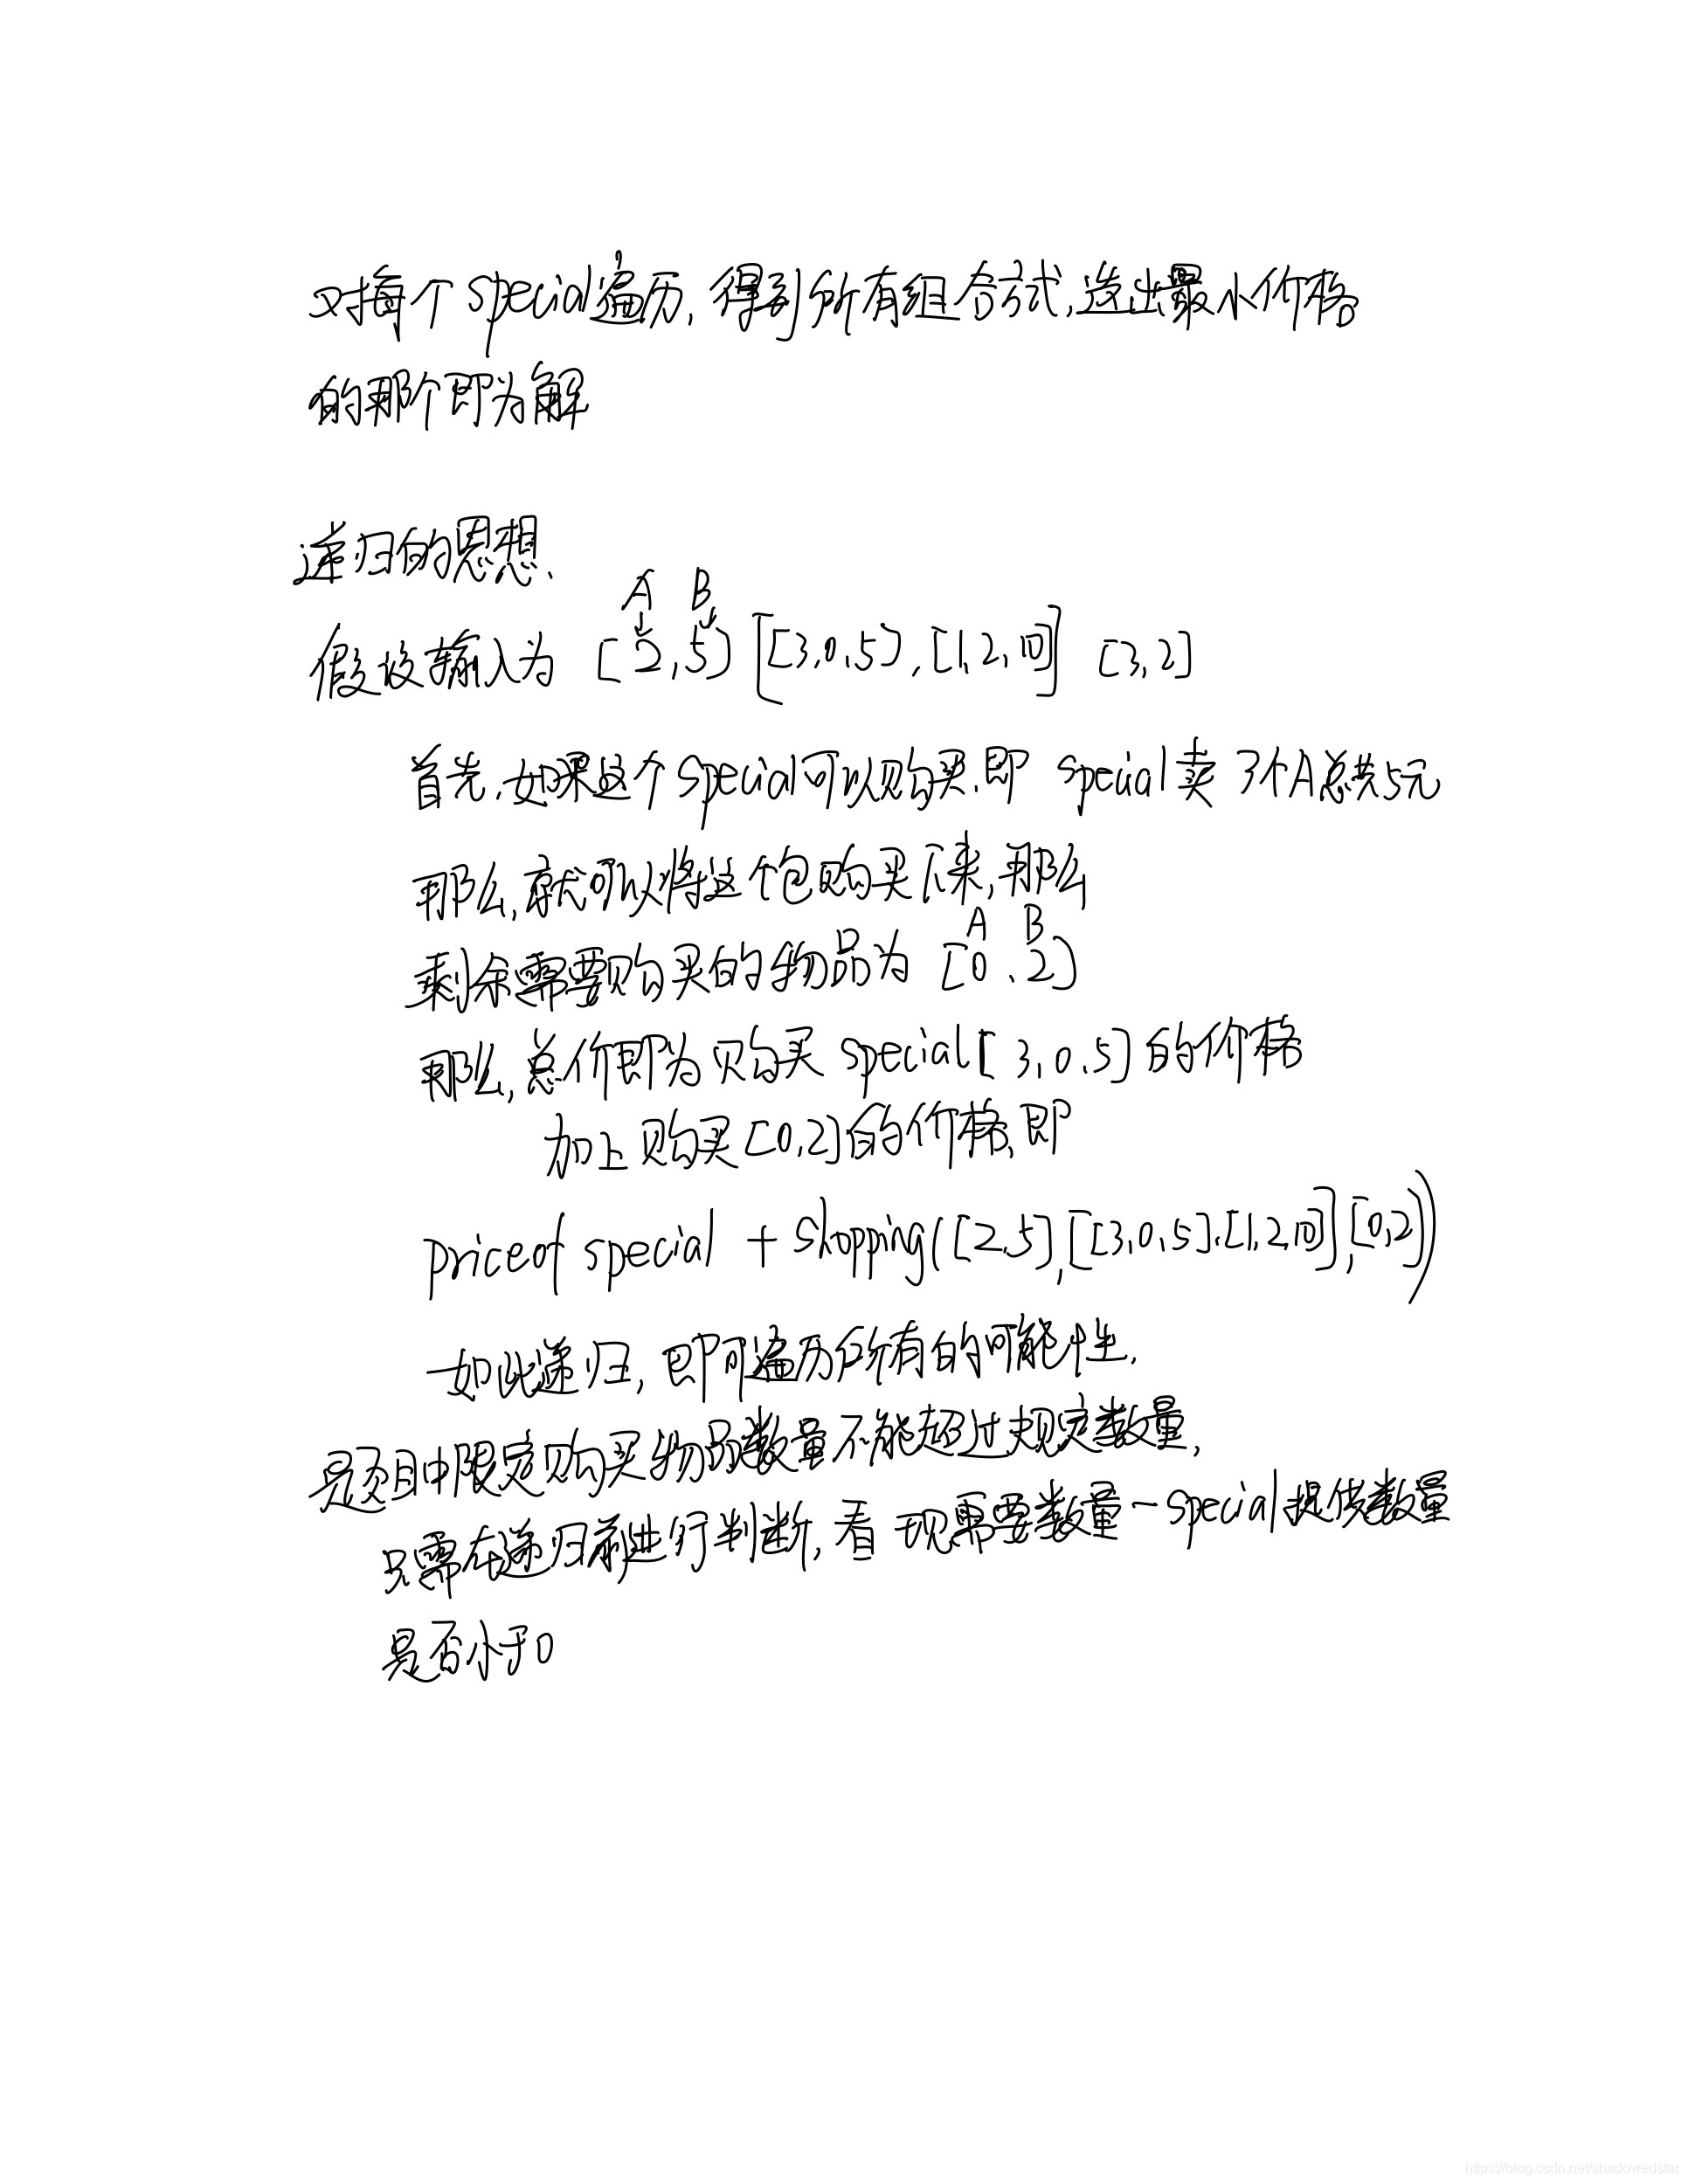 对每个special遍历,得到所有组合方式,选出最小价格
的那个即为解
递归的思想、
A B
假设输入为 [2,5] [[3,0,5],[1,2,10]] [3,2]
首先,如果这个special可以购买,即 special卖 3个A总共5元
那么,就可以将这个包购买下来,那么
A B
剩余需要购买的物品为 [0,2]
那么,总价即为购买special[3,0,5]的价格
加上购买[0,2]的价格,即
price of special + shopping([2,5],[[3,0,5],[1,2,10]],[0,2])
如此递归,即可遍历所有的可能性,
题目中限定购买物品数量不能超过规定数量,
只需在递归前进行判断,看现需要数量-special提供数量
是否小于0
https://blog.csdn.net/shadowedstar